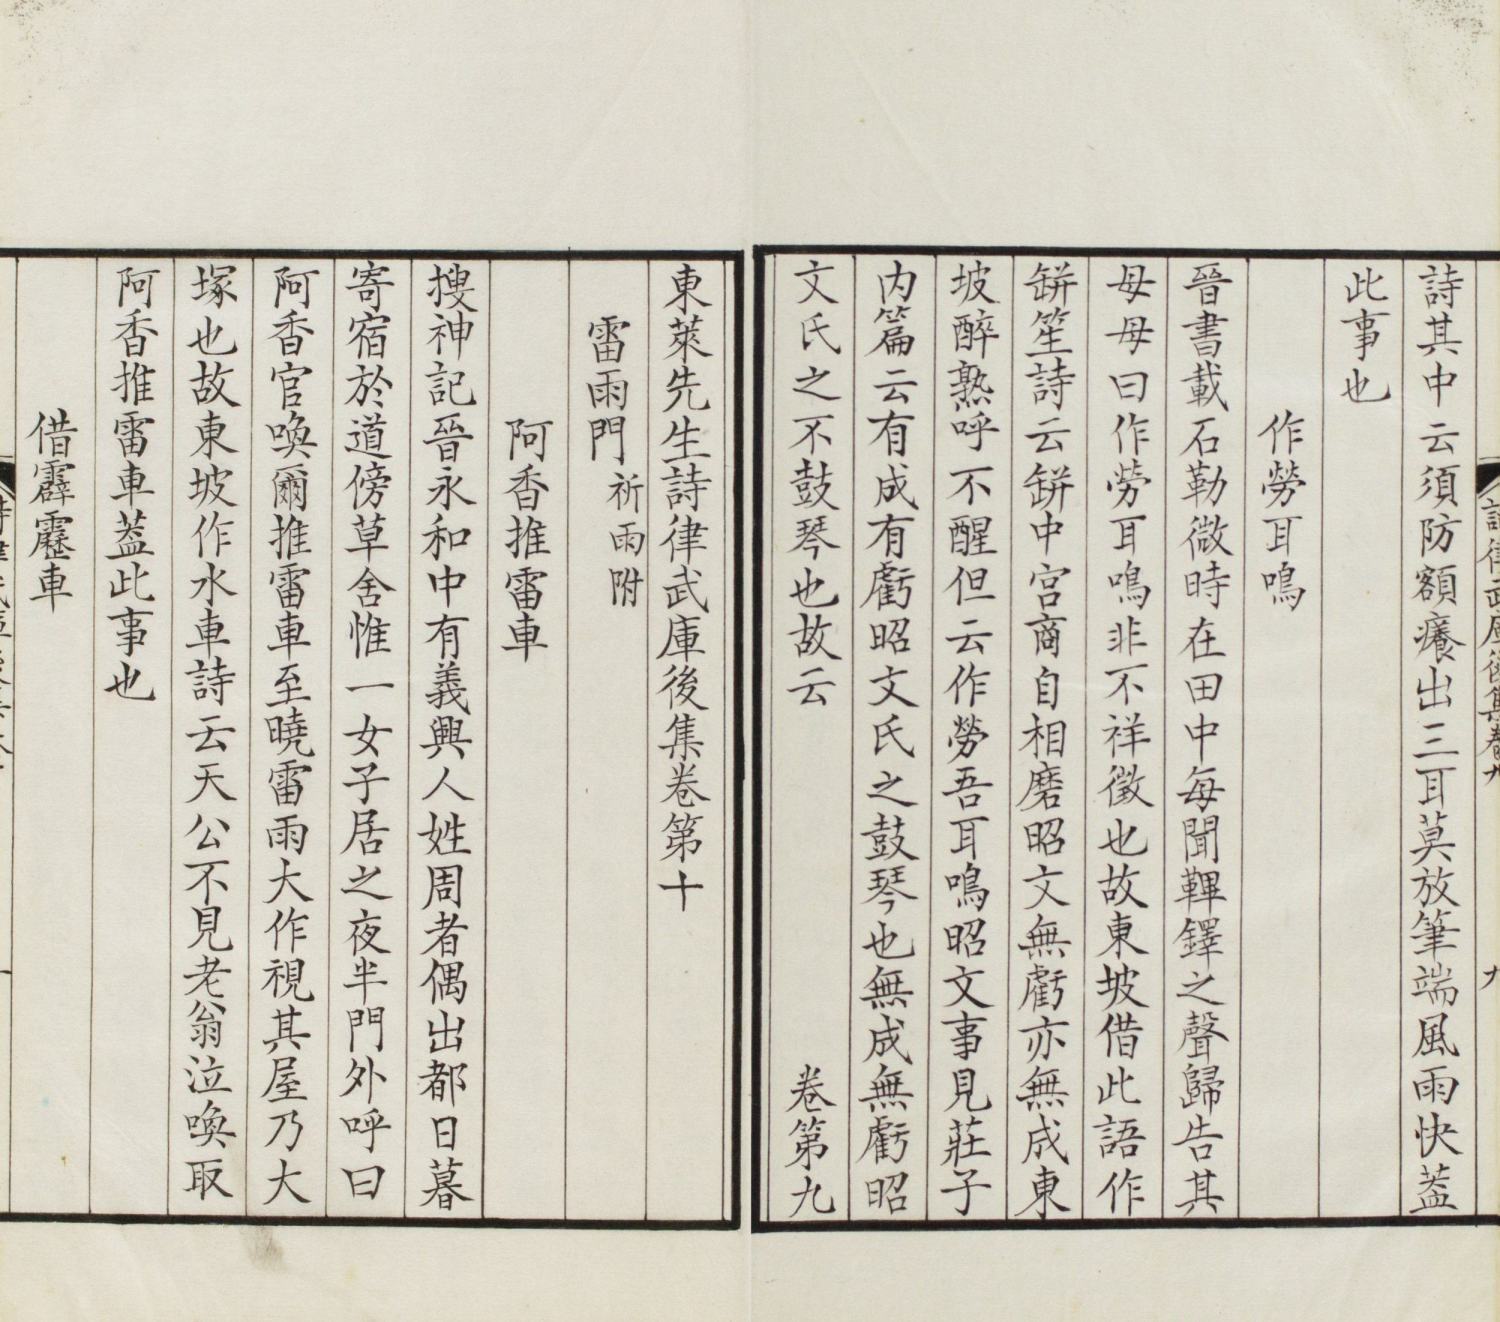 詩其中云須防額癢出三耳莫放筆端風雨快蓋
此事也
作勞耳鳴
晉書載石勒微時在田中每聞鞞鐸之聲歸告其
母母曰作勞耳鳴非不祥徵也故東坡借此語作
缾笙詩云缾中宮商自相磨昭文無虧亦無成東
坡醉熟呼不醒但云作勞吾耳鳴昭文事見莊子
内篇云有成有虧昭文氏之鼓琴也無成無虧昭
文氏之不鼓琴也故云 卷第九
東萊先生詩律武庫後集卷第十
雷雨門 祈雨附
阿香推雷車
搜神記晉永和中有義興人姓周者偶出都日暮
寄宿於道傍草舍惟一女子居之夜半門外呼曰
阿香官喚爾推雷車至曉雷雨大作視其屋乃大
塚也故東坡作水車詩云天公不見老翁泣喚取
阿香推雷車蓋此事也
借霹靂車